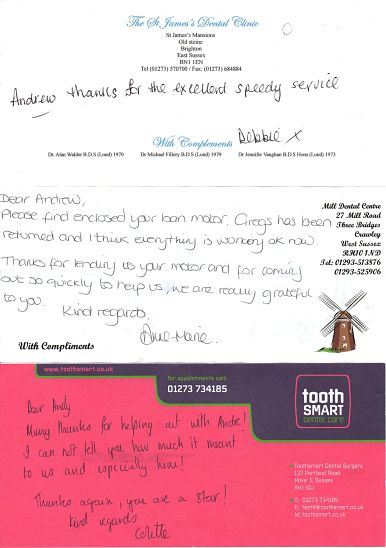 The St. James's Dental Clinic
St James's Mansions
Old steine
Brighton
East Sussex
BN1 1EN
Tel (01273) 570700 / Fax: (01273) 684884
Andrew thanks for the excellent speedy service
Debbie x
With Compliments
Dr. Alan Walder B.D.S (Lond) 1970
Dr Michael Fillery B.D.S (Lond) 1979
Dr Jennifer Vaughan B.D.S Hons (Lond) 1973
Dear Andrew,
Please find enclosed your loan motor. Gregs has been
returned and I think everything is working ok now.
Thanks for lending us your motor and for coming
out so quickly to help us, we are really grateful
to you.
Kind regards,
Anne-Marie.
With Compliments
Mill Dental Centre
27 Mill Road
Three Bridges
Crawley
West Sussex
RH10 1ND
Tel: 01293-513876
01293-525906
www.toothsmart.co.uk
for appointments call:
01273 734185
tooth
SMART
dental care
Dear Andy
Many thanks for helping out with Andre!
I can not tell you how much it meant
to us and especially him!
Thanks again, you are a star!
kind regards
Colette
Toothsmart Dental Surgery
137 Portland Road
Hove E Sussex
BN3 5QJ
T: 01273 734185
E: teeth@toothsmart.co.uk
W: toothsmart.co.uk